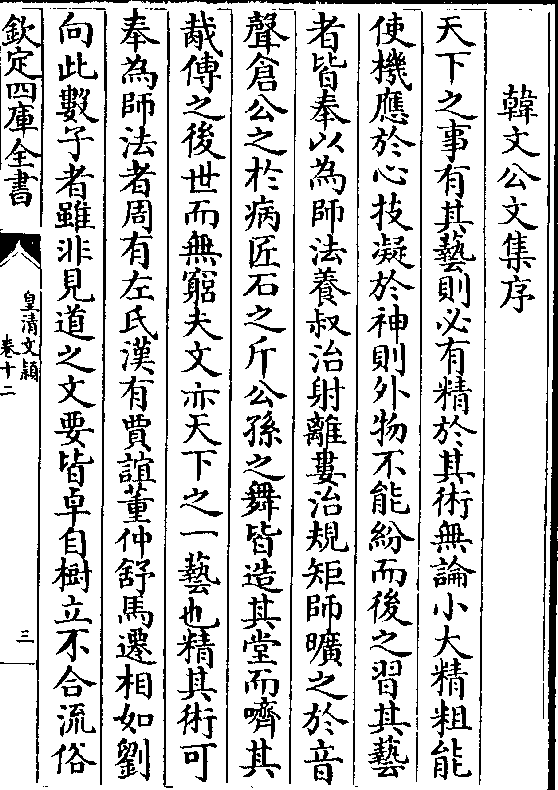 韓文公文集序
天下之事有其藝則必有精於其術無論小大精粗能
使機應於心技凝於神則外物不能紛而後之習其藝
者皆奉以為師法養叔治射離婁治規矩師曠之於音
聲倉公之於病匠石之斤公孫之舞皆造其堂而嚌其
胾傳之後世而無窮夫文亦天下之一藝也精其術可
奉為師法者周有左氏漢有賈誼董仲舒馬遷相如劉
向此數子者雖非見道之文要皆卓自樹立不合流俗
欽定四庫全書
皇清文穎
卷十二
三